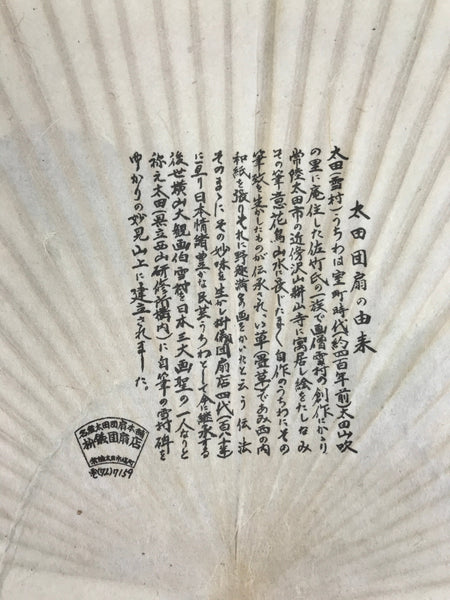 太田団扇の由来
太田(雪村)うちわは室町時代(約四百年前)太田山吹
の里に庵住した佐竹氏の一族で画僧雪村の創作にかゝり
常陸太田市の近傍沢山耕山寺に寓居し絵をたしなみ
その筆意花鳥山水に長じたまく自作のうちわにその
筆致を生かしたものが伝承されい草(畳草)であみ西の内
和紙を張りそれに野趣満々の画をかいたと云う伝法
そのまゝに、その妙味を生かし枡儀団扇店四代(百八十年)
に亘り日本情緒豊かな民芸うちわとして今に継承する
後世横山大観画伯雪村を日本三大画聖の一人なりと
称え太田(県立西山研修所構内)に自筆の雪村碑を
ゆかりの妙見山上に建立されました。
名産太田団扇本舗
枡儀団扇店
常陸太田市
7159